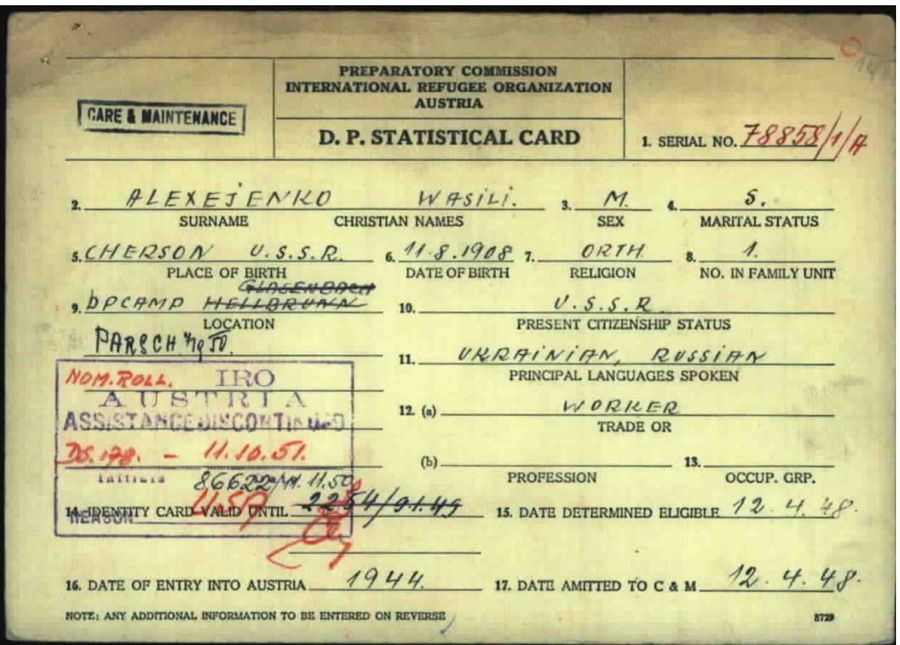 PREPARATORY COMMISSION
INTERNATIONAL REFUGEE ORGANIZATION
AUSTRIA
CARE & MAINTENANCE
D. P. STATISTICAL CARD
1. SERIAL NO. 78858/1/A
2. ALEXEJENKO WASILI. 3. M. 4. S.
SURNAME CHRISTIAN NAMES SEX MARITAL STATUS
5. CHERSON U.S.S.R. 6. 11.8.1908 7. ORTH. 8. 1.
PLACE OF BIRTH DATE OF BIRTH RELIGION NO. IN FAMILY UNIT
GLASENBACH
9. DPCAMP HELLBRUNN 10. U.S.S.R
LOCATION PRESENT CITIZENSHIP STATUS
PARSCH
11. UKRAINIAN, RUSSIAN
PRINCIPAL LANGUAGES SPOKEN
NOM. ROLL. IRO
AUSTRIA
ASSISTANCE DISCONTINUED
12. (a) WORKER
TRADE OR
DS. 178. - 11.10.51.
(b) 13.
Initials 86622/11.50
PROFESSION OCCUP. GRP.
USA
14. IDENTITY CARD VALID UNTIL 2254/31.49 15. DATE DETERMINED ELIGIBLE 12.4.48.
REASON
16. DATE OF ENTRY INTO AUSTRIA 1944. 17. DATE AMITTED TO C & M 12.4.48.
NOTE: ANY ADDITIONAL INFORMATION TO BE ENTERED ON REVERSE 8729